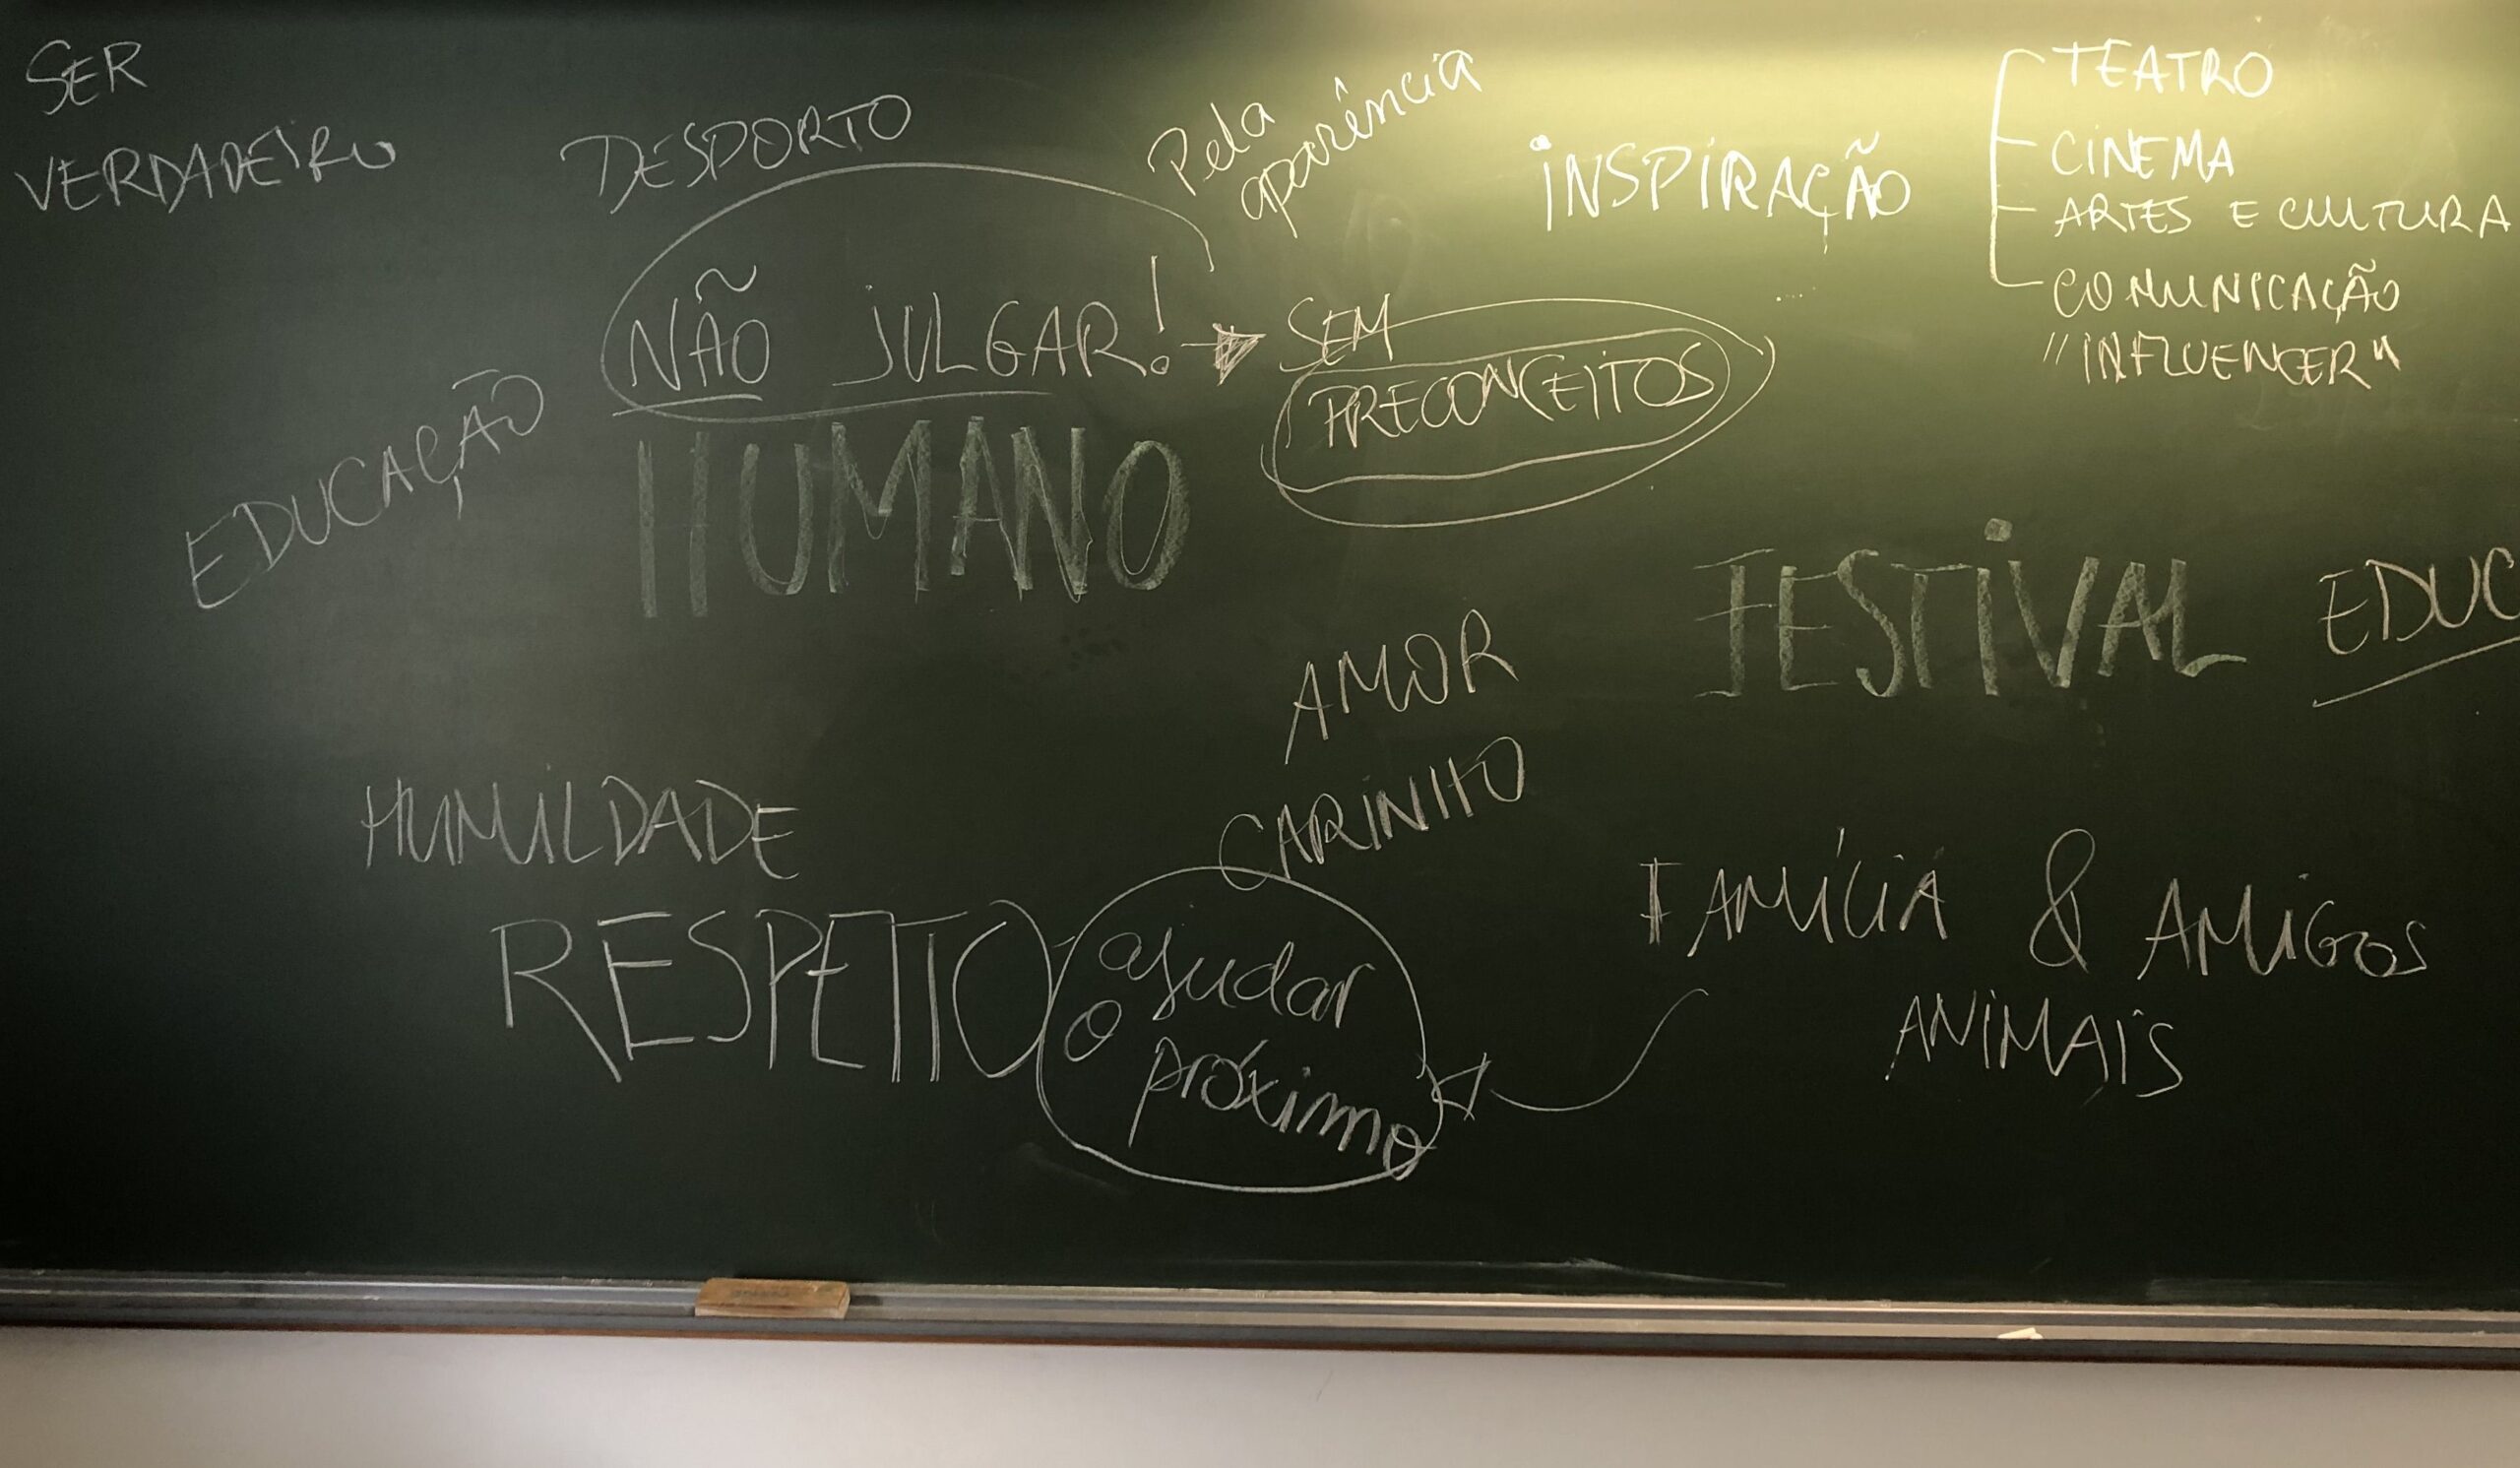 SER
VERDADEIRO
DESPORTO
Pela
aparência
INSPIRAÇÃO
TEATRO
CINEMA
ARTES E CULTURA
COMUNICAÇÃO
"INFLUENCER"
NÃO JULGAR!
SEM
PRECONCEITOS
EDUCAÇÃO
HUMANO
FESTIVAL
EDUC
AMOR
CARINHO
HUMILDADE
RESPEITO
ajudar
o
próximo
FAMÍLIA & AMIGOS
ANIMAIS